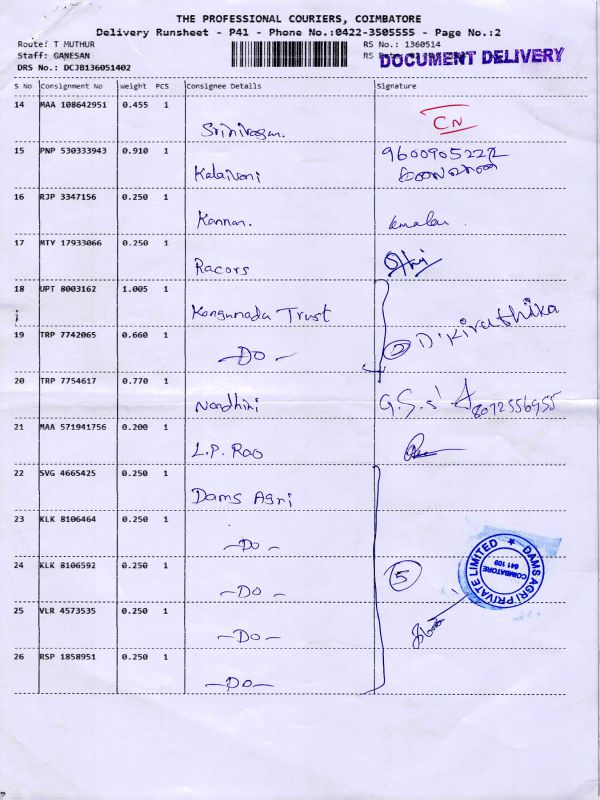 THE PROFESSIONAL COURIERS, COIMBATORE
Delivery Runsheet - P41 - Phone No.:0422-3505555 - Page No.:2
Route: T MUTHUR RS No.: 1360514
Staff: GANESAN RS DOCUMENT DELIVERY
DRS No.: DCJB136051402
S No Consignment No Weight PCS Consignee Details Signature
14 MAA 108642951 0.455 1 Srinivasan. CN
15 PNP 530333943 0.910 1 Kalaivani 9600905222
16 RJP 3347156 0.250 1 Kannan.
17 MTY 17933066 0.250 1 Racors
18 UPT 8003162 1.005 1 Kongunadu Trust
19 TRP 7742065 0.660 1 -Do- 2 D.Kiruthika
20 TRP 7754617 0.770 1 Nandhini G.S.S 8072556955
21 MAA 571941756 0.200 1 L.P. Rao
22 SVG 4665425 0.250 1 Dams Agri
23 KLK 8106464 0.250 1 -Do-
24 KLK 8106592 0.250 1 -Do- 5
DAMS AGRI PRIVATE LIMITED ★
COIMBATORE
641 109
25 VLR 4573535 0.250 1 -Do-
26 RSP 1858951 0.250 1 -Do-